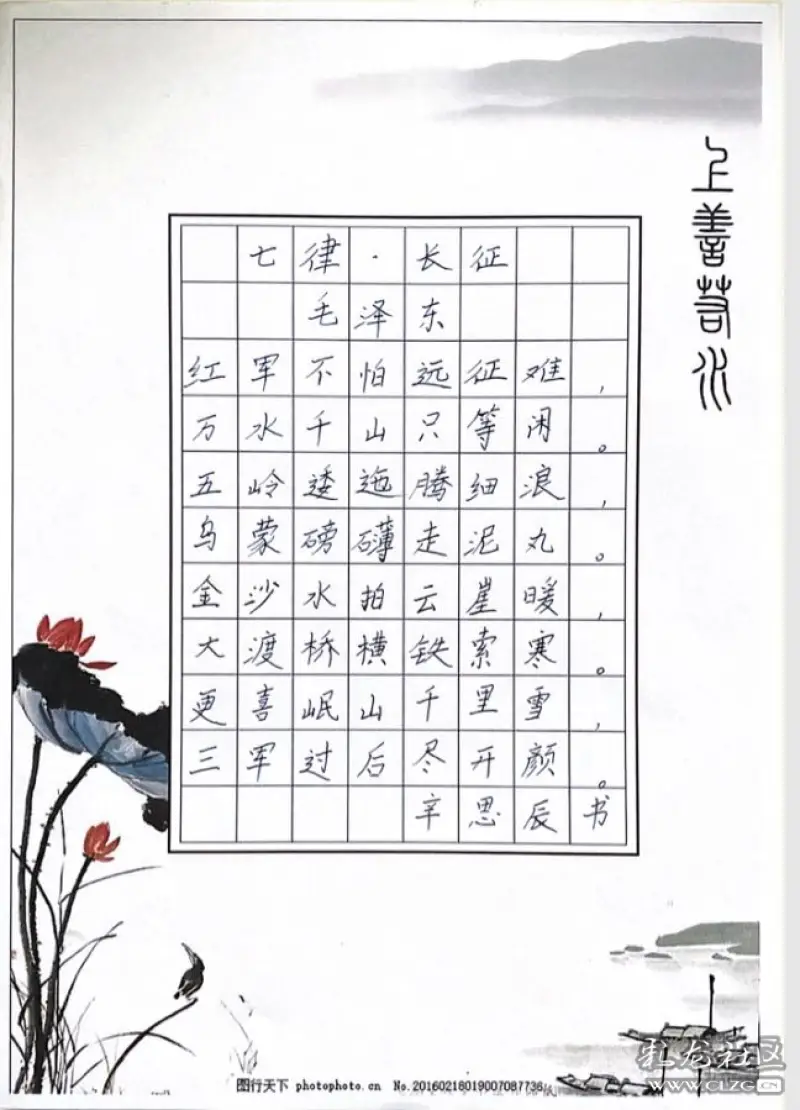 上善若水
七律·长征
毛泽东
红军不怕远征难，
万水千山只等闲。
五岭逶迤腾细浪，
乌蒙磅礴走泥丸。
金沙水拍云崖暖，
大渡桥横铁索寒。
更喜岷山千里雪，
三军过后尽开颜。
辛思辰书
图行天下 photophoto.cn No.20160216019007087736
乳龙社区
WWW.CLZG.CN